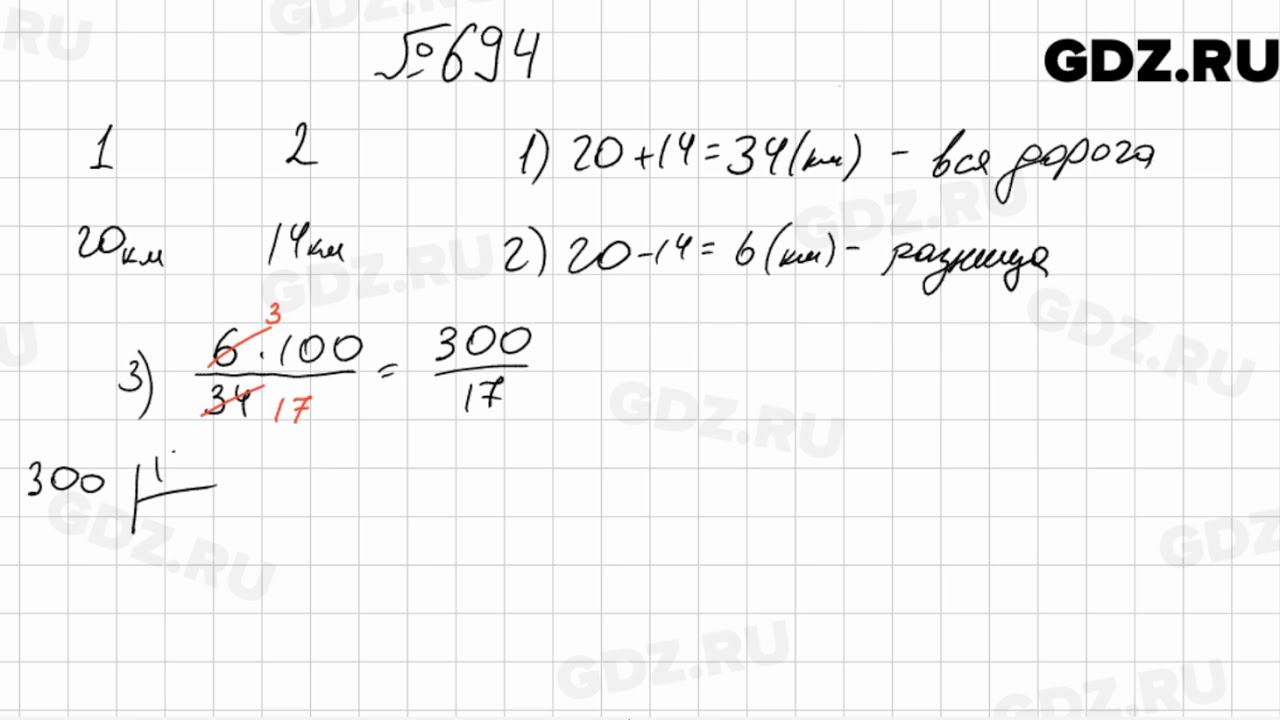 №694
GDZ.RU
1 2
20км 14км
1) 20+14=34(км) - вся дорога
2) 20-14= 6(км)- разница
3) 6·100/34 = 300/17
3
17
300 1